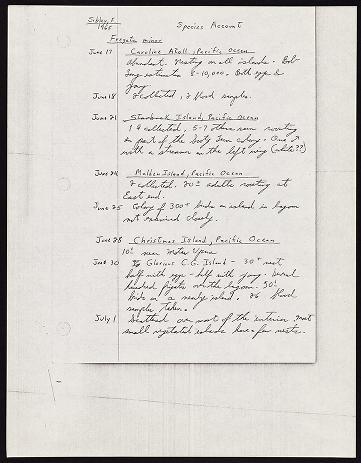 Sibley, F.
1965
Species Account
Fregata minor
June 17 Caroline Atoll, Pacific Ocean
Abundant. Nesting on all islands. Bob
Long estimates 8-10,000. Both eggs &
June 18 2 collected, 2 blood samples.
June 21 Starbuck Island, Pacific Ocean
1 ♀ collected, 5-7 others seen roosting
in part of the Sooty Tern colony. One ♂
with a streamer on the left wing (white??)
June 24 Malden Island, Pacific Ocean
2 collected. 20± adults roosting at
East end.
June 25 Colony of 300+ birds on island in lagoon
not examined closely.
June 28 Christmas Island, Pacific Ocean
10± near Motu Upua
June 30 Island - 30+ nest
half with eggs - half with young. Several
hundred frigates over the lagoon. 50±
birds on a nearby island. 26 blood
samples taken.
July 1 Scattered over most of the interior, most
small vegetated islands have a few nests.